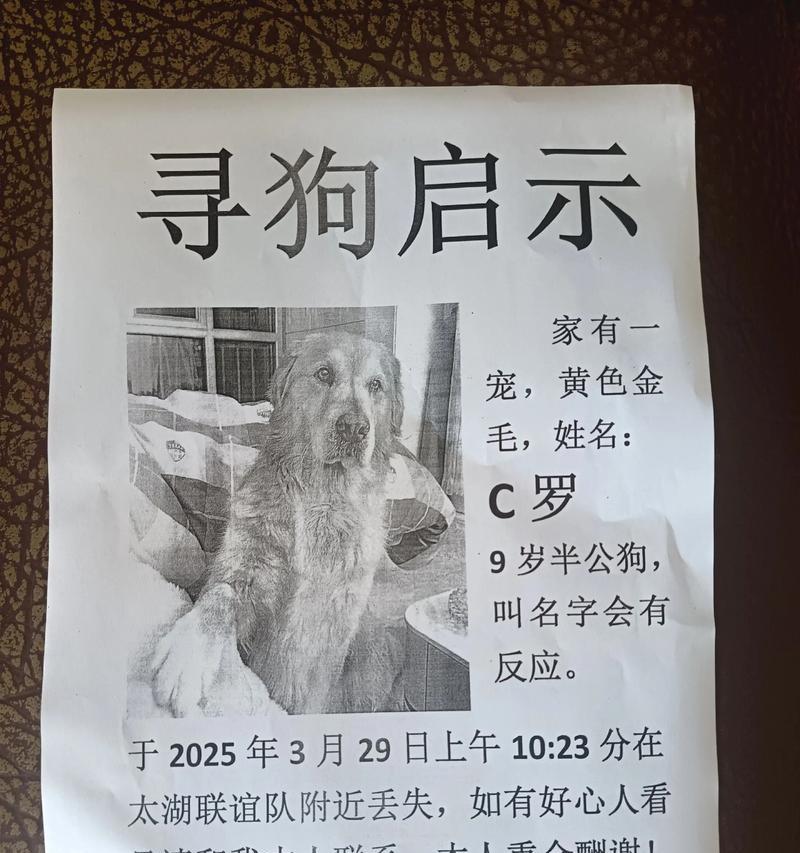 寻狗启示
家有一
宠，黄色金
毛，姓名：
C 罗
9 岁半公狗，
叫名字会有
反应。
于 2025 年 3 月 29 日上午 10:23 分在
太湖联谊队附近丢失，如有好心人看
本人重金酬谢！